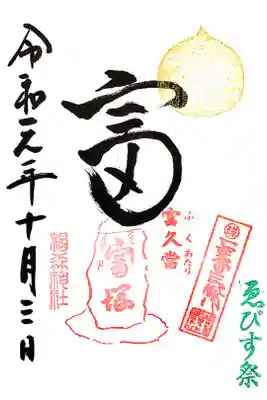 富
令和元年十月三日
椙森神社
富久當
ふくあたり
富塚
ゑびす祭